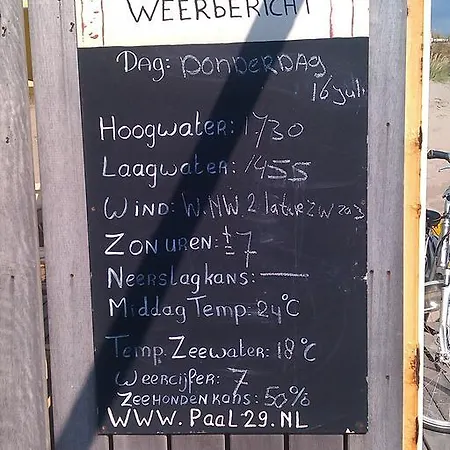 WEERBERICHT
Dag: DONDERDAG
16 juli
Hoogwater: 1730
Laagwater: 1455
Wind: W.NW. 2 later ZW
Zon uren: ± 7
Neerslagkans: —
Middag Temp: 24°C
Temp. Zeewater: 18°C
Weercijfer: 7
Zeehonden kans: 50%
WWW.PAAL29.NL